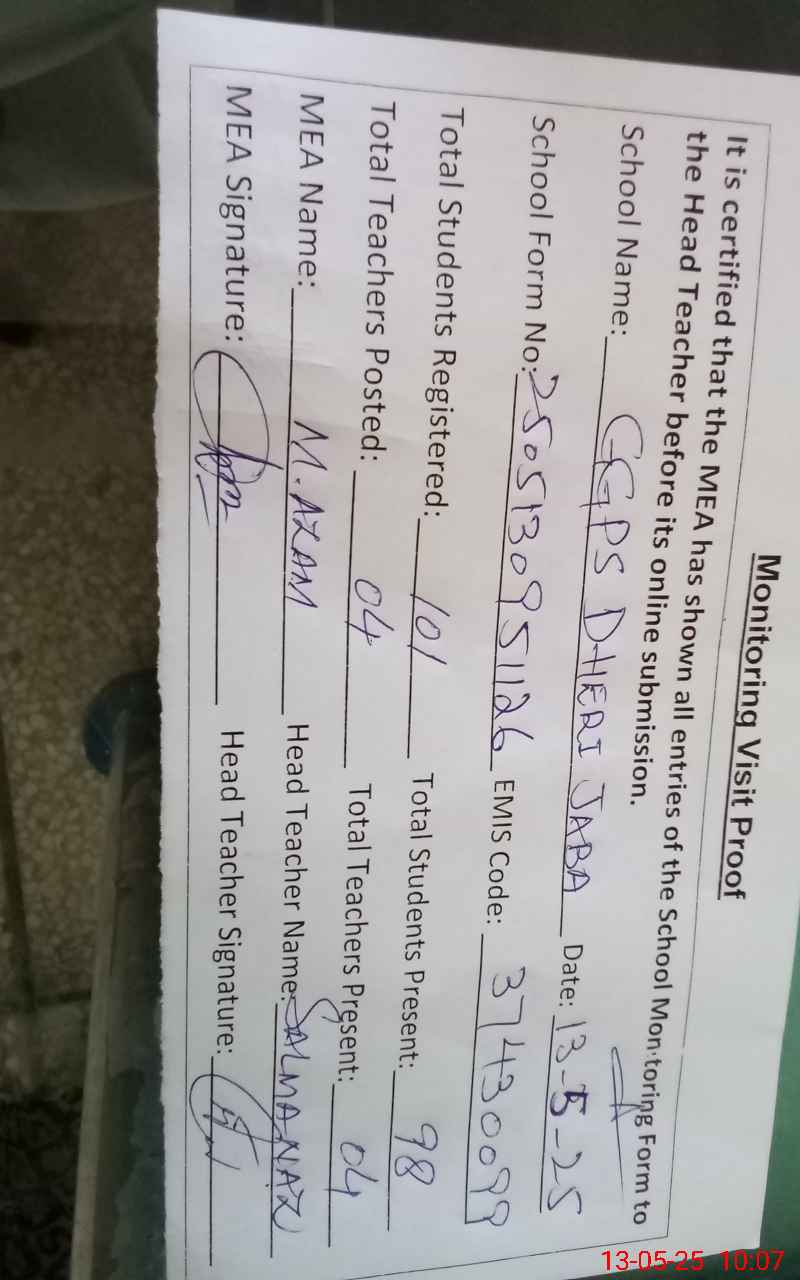 Monitoring Visit Proof
It is certified that the MEA has shown all entries of the School Monitoring Form to
the Head Teacher before its online submission.
School Name: GGPS DHERI JABA Date: 13-5-25
School Form No: 2505130951126 EMIS Code: 37430099
Total Students Registered: 101 Total Students Present: 98
Total Teachers Posted: 04 Total Teachers Present: 04
MEA Name: M. AZAM Head Teacher Name: SALMA NAZ
MEA Signature: Head Teacher Signature:
13-05-25 10:07